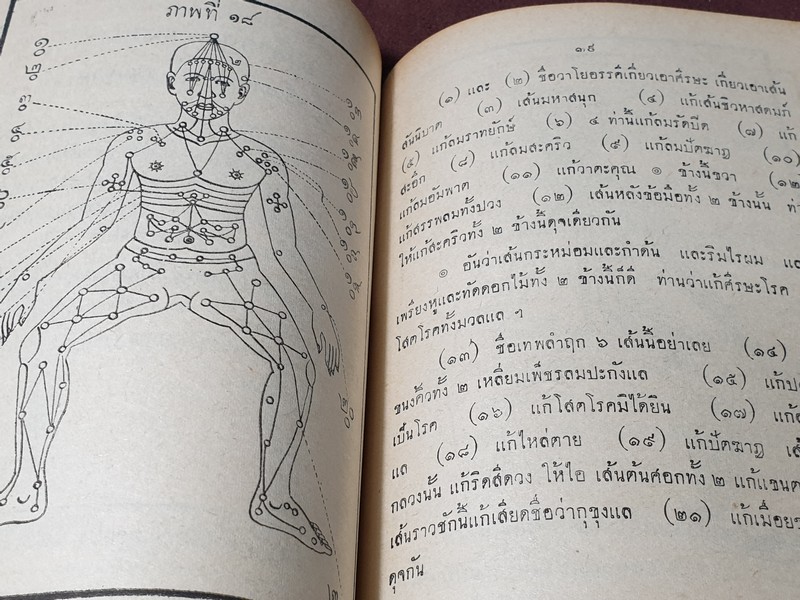 ภาพที่ ๑๘
๑๙
(๑) และ (๒) ชื่อวาโยอรรคีเกี่ยวเอาศีรษะ เกี่ยวเอาเส้น
สันนิบาต (๓) เส้นมหาสนุก (๔) แก้เส้นชิวหาสดมภ์
(๕) แก้ลมราทยักษ์ (๖) ๔ ท่านี้แก้ลมรัดปีด (๗) แก้
สะอึก (๘) แก้ลมสะคริว (๙) แก้ลมปัตฆาฏ (๑๐)
แก้ลมอัมพาต (๑๑) แก้วาตะคุณ ๑ ข้างนี้ขวา (๑๒
แก้สรรพลมทั้งปวง (๑๒) เส้นหลังข้อมือทั้ง ๒ ข้างนั้น
ให้แก้สะคริวทั้ง ๒ ข้างนี้ดุจเดียวกัน
๑ อันว่าเส้นกระหม่อมและกำด้น และริมไรผม
เพรียงหูและทัดดอกไม้ทั้ง ๒ ข้างนี้ก็ดี ท่านว่าแก้ศีรษะโรค
โสตโรคทั้งมวลแล ฯ
(๑๓) ชื่อเทพลำฤก ๖ เส้นนี้อย่าเลย (๑๔)
ขนงคิ้วทั้ง ๒ เหลี่ยมเพ็ชรลมปะกังแล (๑๕)
เป็นโรค (๑๖) แก้โสตโรคมิได้ยิน (๑๗)
แล (๑๘) แก้ไหล่ตาย (๑๙) แก้ปัตฆาฏ
กลวงนั้น แก้ริดสีดวง ให้ไอ เส้นต้นศอกทั้ง ๒
เส้นราวชักนี้แก้เสียดชื่อว่ากุขุงแล (๒๑) แก้เมื่อย
ดุจกัน